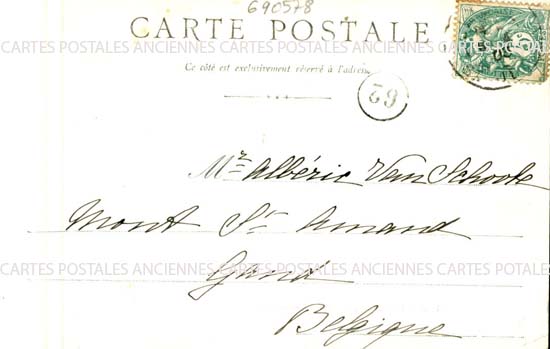 690578
CARTE POSTALE
CARTES POSTALES ANCIENNES CARTES POSTALES ANCIENNES CARTES POSTALES
Ce côté est exclusivement réservé à l'adresse
62
Mr Albéric Van Schoote
Mont St Amand
CARTES POSTALES ANCIENNES CARTES POSTALES ANCIENNES CARTES POTALES
Gand
Belgique